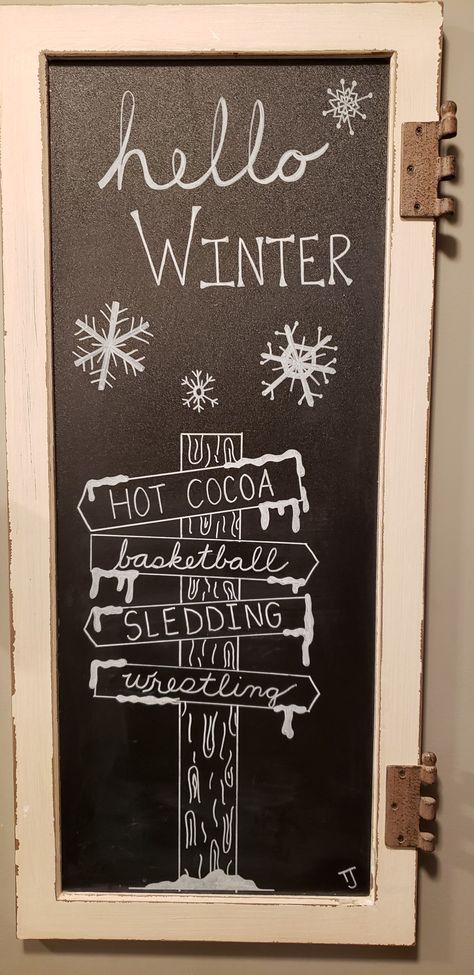 hello
WINTER
HOT COCOA
basketball
SLEDDING
wrestling
TJ